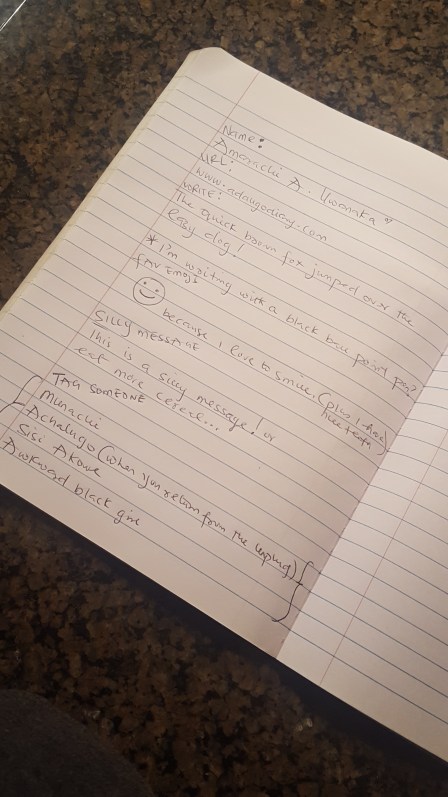 Name:
Amarachi A. Uwannka
URL:
www.adaugodiary.com
WRITE:
The quick brown fox jumped over the
lazy dog!
* I'm writing with a black ball point pen?
FAV EMOJI
because I love to smile. (plus I have
nice teeth)
SILLY MESSAGE
This is a silly message! or
eat more cereal...
TAG SOMEONE
Munachi
Achalugo (when you return from the unplug)
Sisi
Awkward black girl